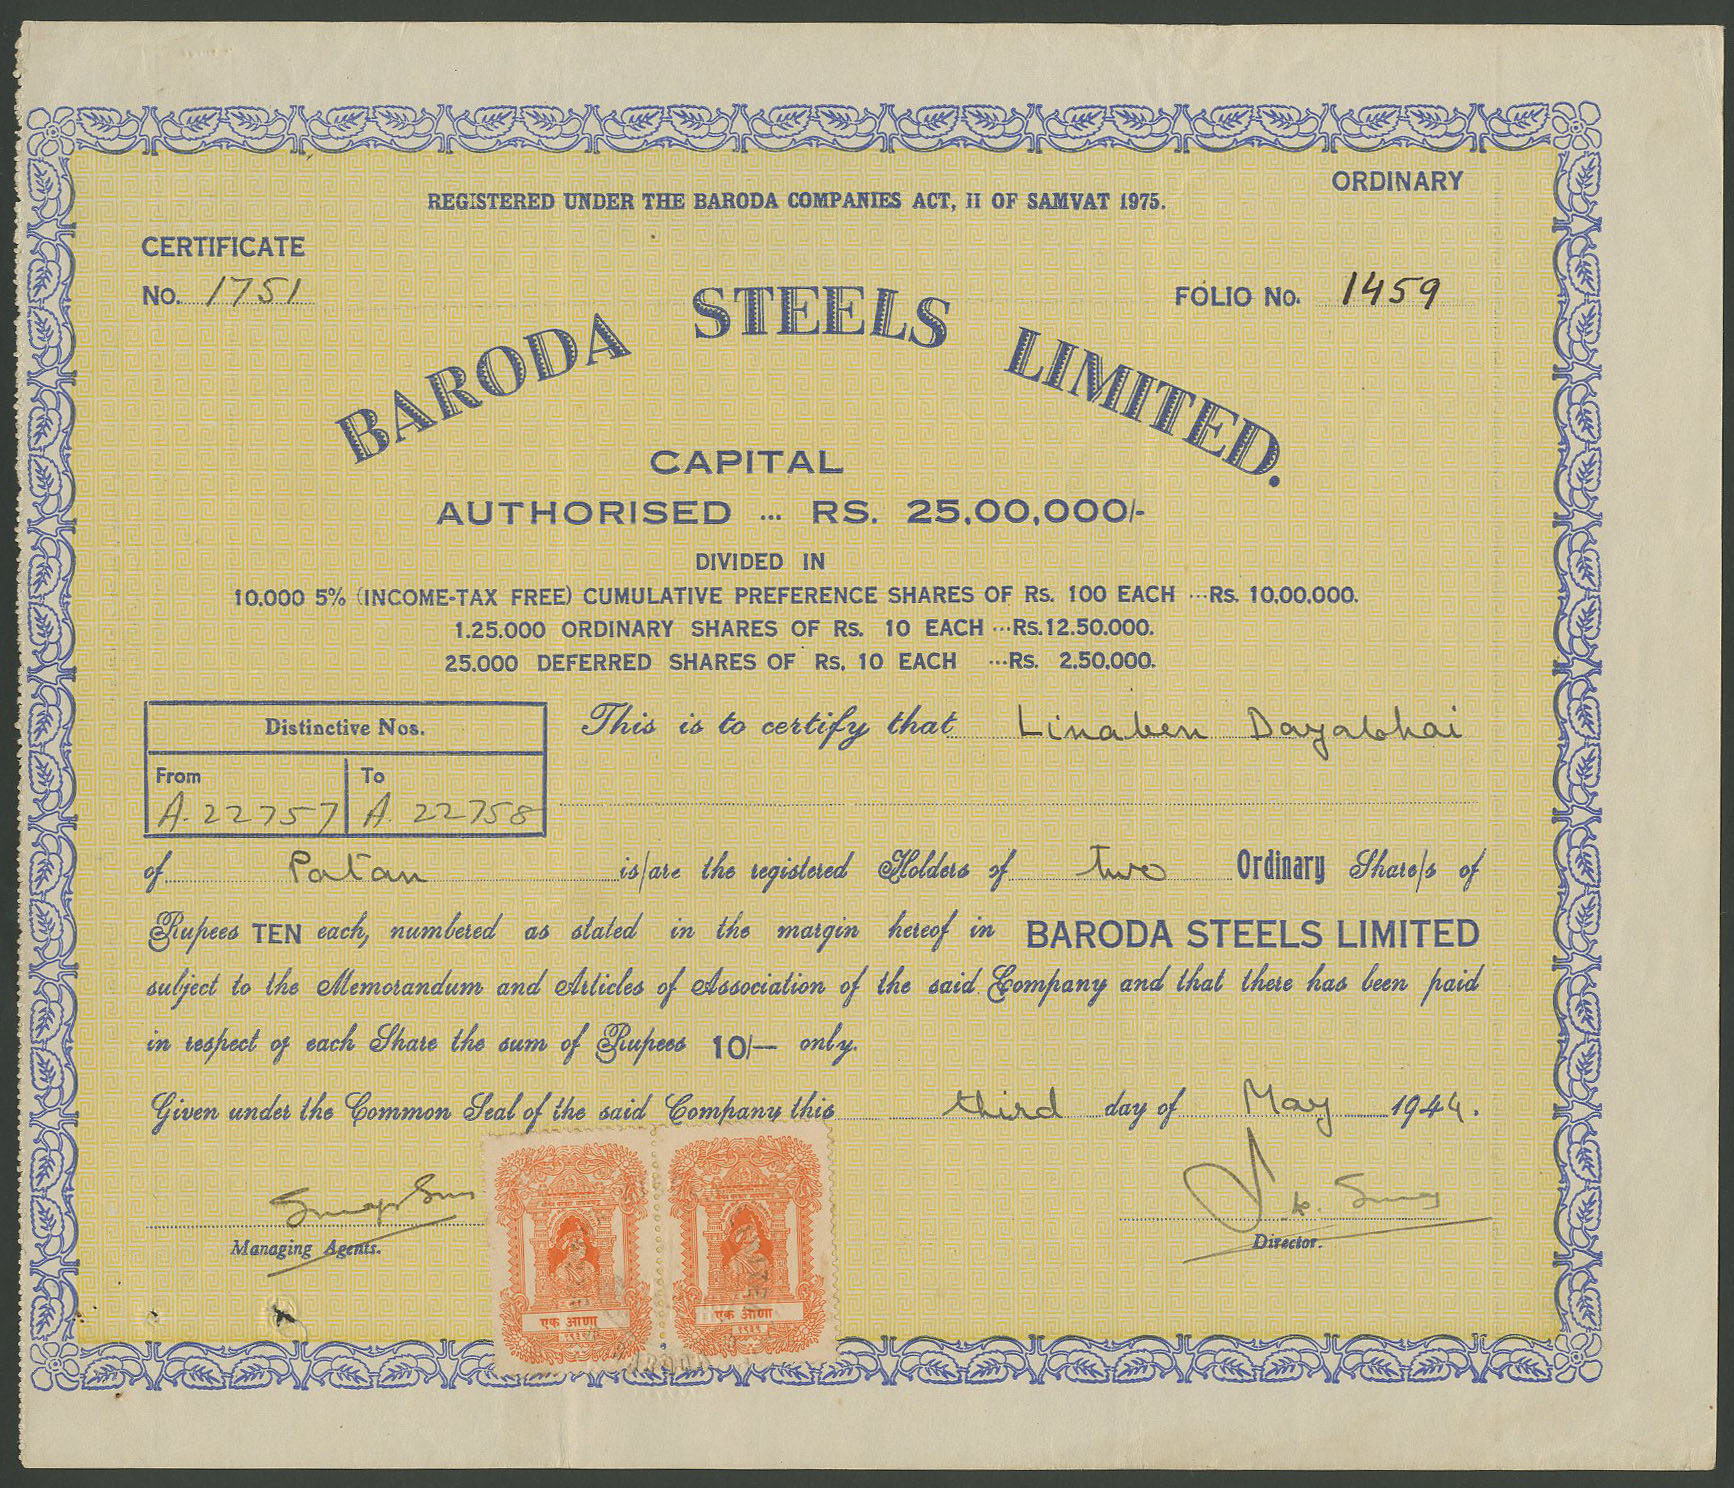 ORDINARY
REGISTERED UNDER THE BARODA COMPANIES ACT, II OF SAMVAT 1975.
CERTIFICATE
No. 1751
FOLIO No. 1459
BARODA STEELS LIMITED.
CAPITAL
AUTHORISED ... RS. 25,00,000/-
DIVIDED IN
10.000 5% (INCOME-TAX FREE) CUMULATIVE PREFERENCE SHARES OF Rs. 100 EACH ...Rs. 10,00,000.
1.25.000 ORDINARY SHARES OF Rs. 10 EACH ...Rs.12.50.000.
25.000 DEFERRED SHARES OF Rs. 10 EACH ...Rs. 2.50,000.
Distinctive Nos.
From To
A. 22757 A. 22758
This is to certify that Linaben Dayabhai
of Patan is/are the registered Holders of two Ordinary Share/s of
Rupees TEN each, numbered as stated in the margin hereof in BARODA STEELS LIMITED
subject to the Memorandum and Articles of Association of the said Company and that there has been paid
in respect of each Share the sum of Rupees 10/— only.
Given under the Common Seal of the said Company this third day of May 1944.
Managing Agents.
Director.
एक आणा
१९३९
एक आणा
१९३९